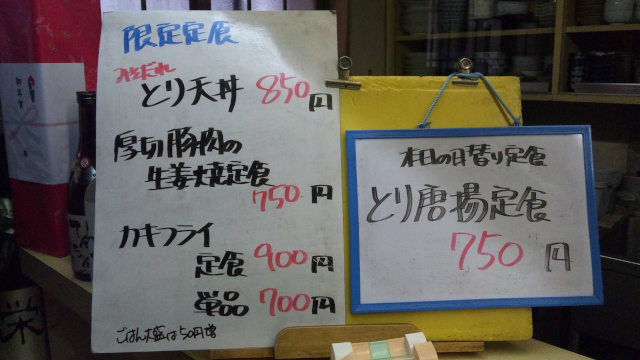 限定定食
とり天丼 850円
厚切豚肉の
生姜焼定食
750円
カキフライ
定食 900円
単品 700円
ごはん大盛は50円増
本日の日替り定食
とり唐揚定食
750円
御年賀
栄